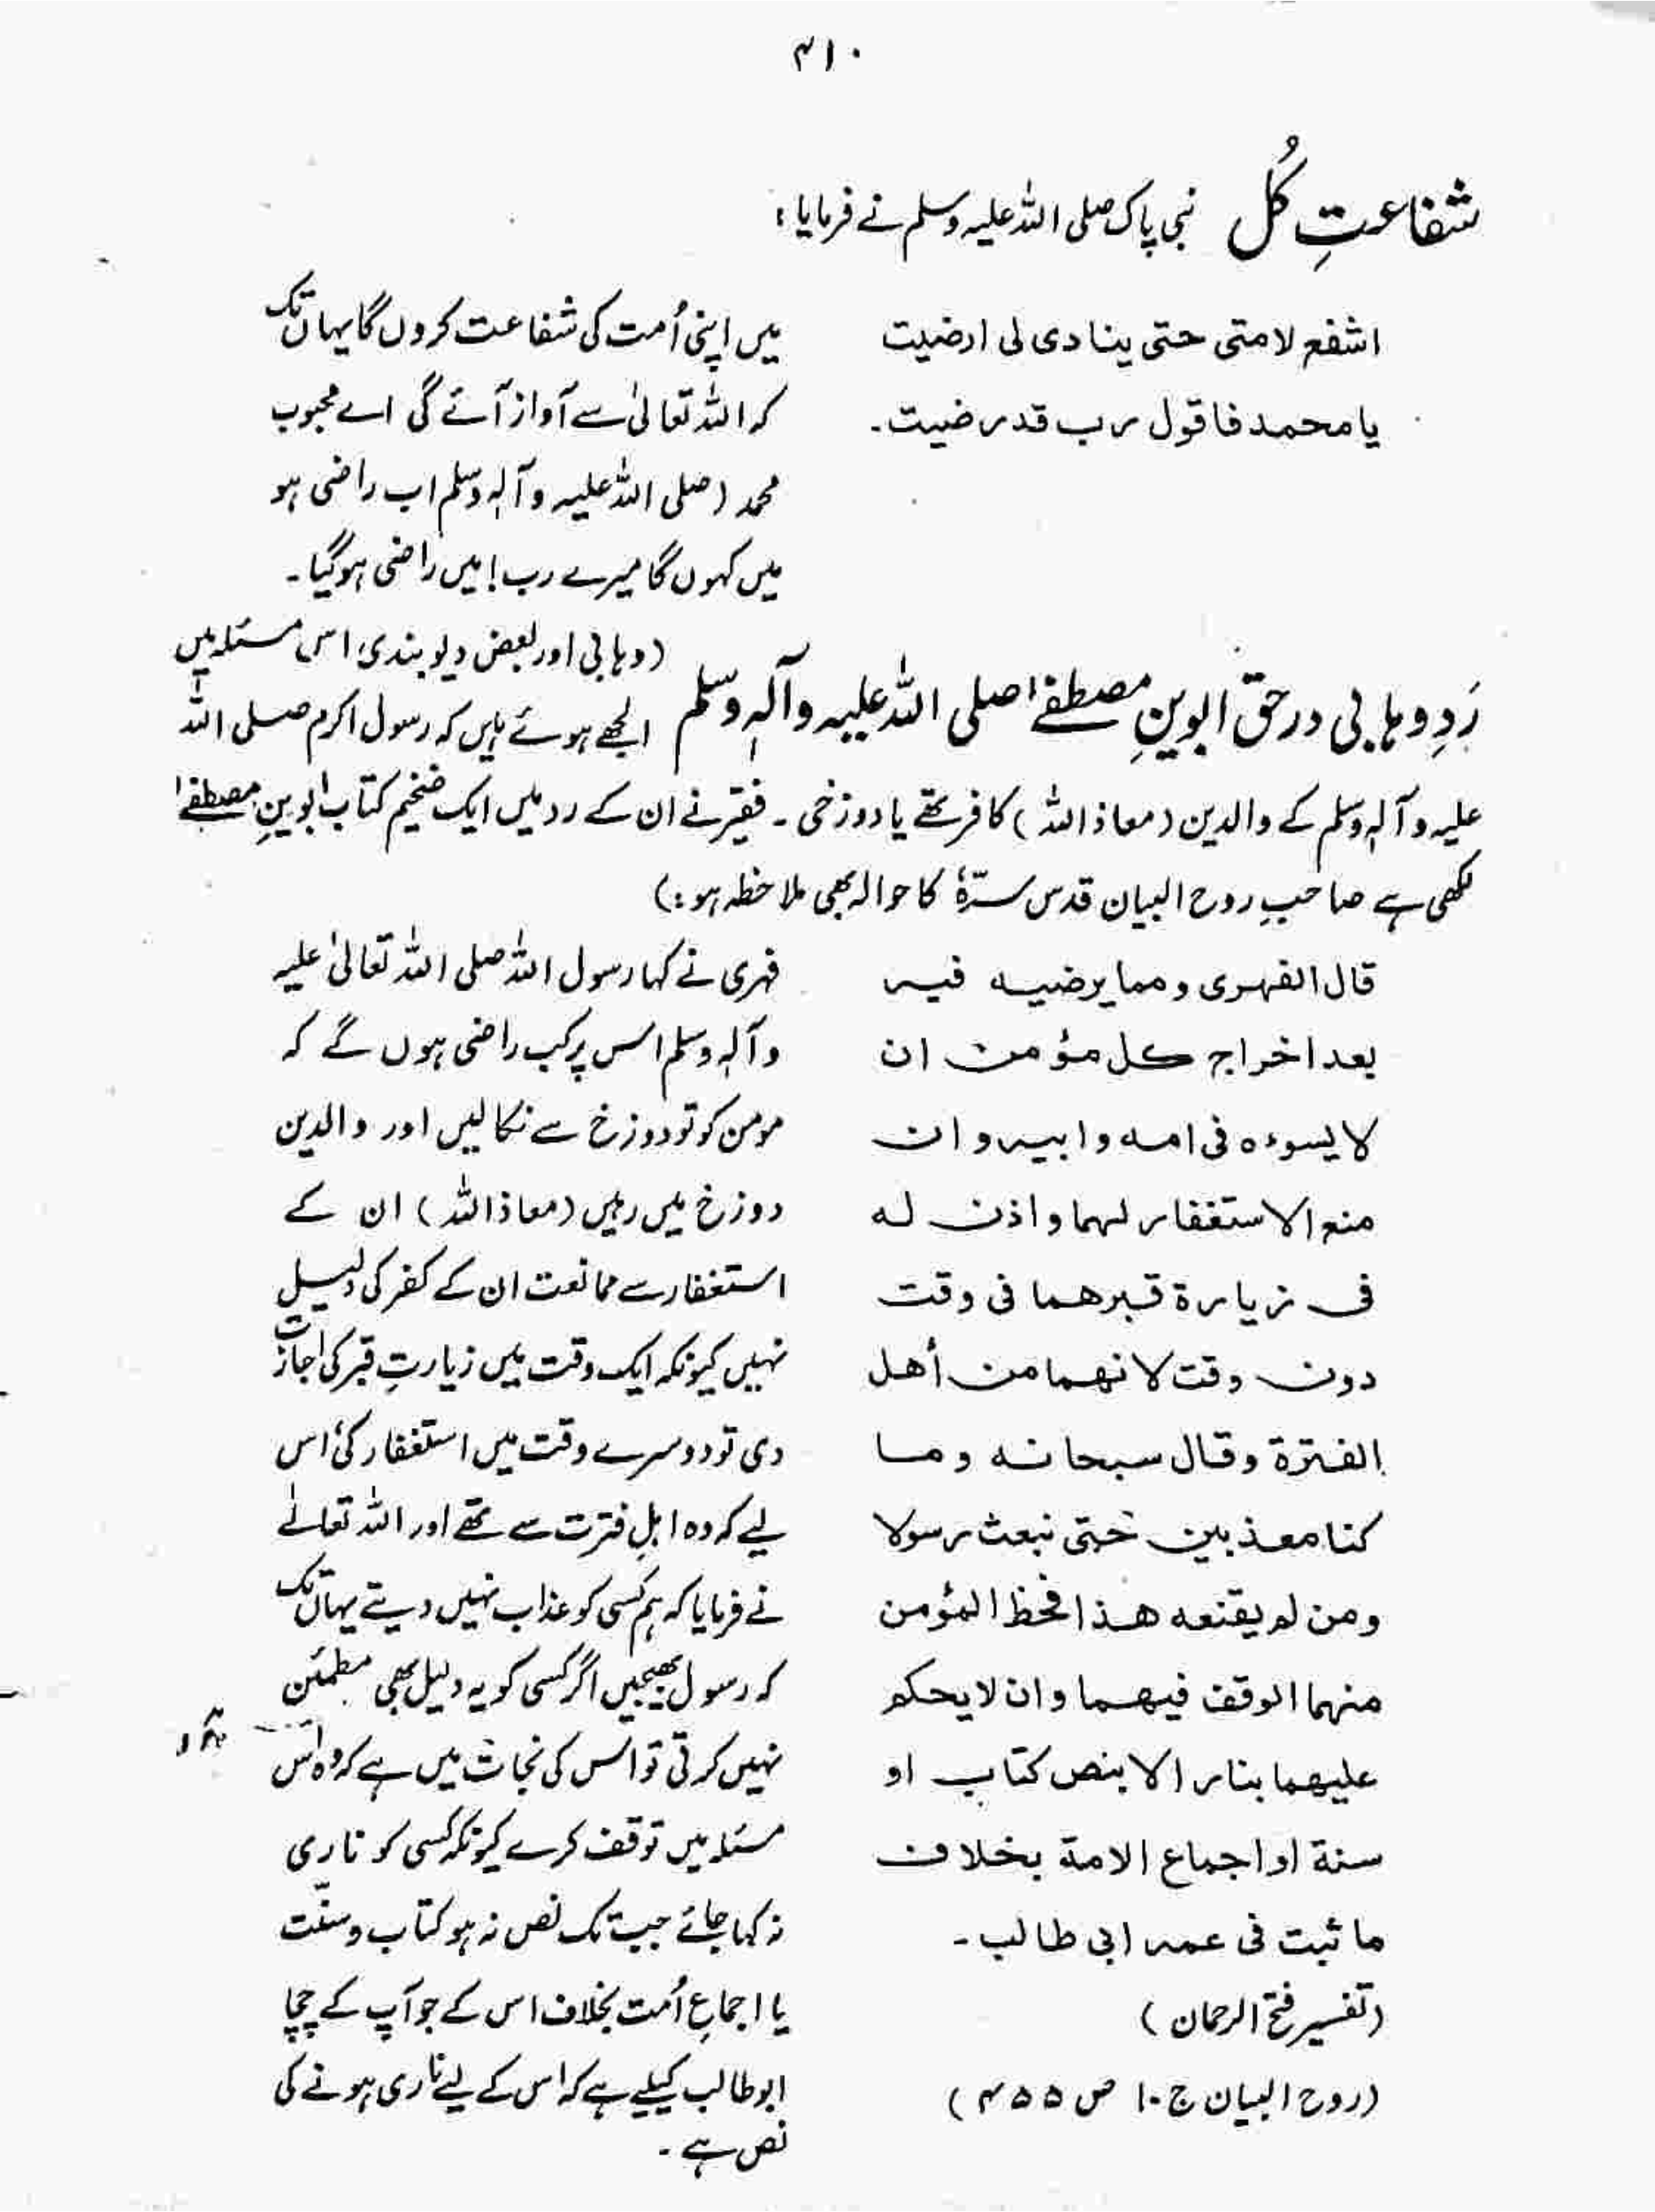 ۴۱۰
شفاعتِ کُل نبی پاک صلی اللہ علیہ وسلم نے فرمایا:
اشفع لامتی حتی ینادی لی ارضیت
یا محمد فاقول رب قد رضیت۔
میں اپنی اُمت کی شفاعت کروں گا یہاں تک
کہ اللہ تعالیٰ سے آواز آئے گی اے محبوب
محمد (صلی اللہ علیہ وآلہٖ وسلم اب راضی ہو
میں کہوں گا میرے رب! میں راضی ہوگیا۔
رَدِ وہابی در حق ابوینِ مصطفےٰ صلی اللہ علیہ وآلہٖ وسلم (وہابی اور بعض دیوبندی اس مسئلہ میں
الجھے ہوئے ہیں کہ رسول اکرم صلی اللہ
علیہ وآلہٖ وسلم کے والدین (معاذ اللہ) کافر تھے یا دوزخی۔ فقیر نے ان کے رد میں ایک ضخیم کتاب ابوینِ مصطفےٰ
لکھی ہے صاحبِ روح البیان قدس سرّہٗ کا حوالہ بھی ملاحظہ ہو:)
قال الفہری ومما یرضیہ فیہ
بعد اخراج کل مؤمن ان
لا یسوءہ فی امہ وابیہ وان
منع الاستغفار لہما واذن لہ
فی زیارۃ قبرھما فی وقت
دون وقت لانھما من أھل
الفترۃ وقال سبحانہ وما
کنا معذبین حتی نبعث رسولا
ومن لم یقنعہ ھذا فحظ المؤمن
منہما الوقف فیھما وان لا یحکم
علیھما بنار الا بنص کتاب او
سنۃ او اجماع الامۃ بخلاف
ما ثبت فی عمہ ابی طالب۔
(تفسیر فتح الرحمان)
(روح البیان ج ۱۰ ص ۴۵۵)
فہری نے کہا رسول اللہ صلی اللہ تعالیٰ علیہ
وآلہٖ وسلم اس پر کب راضی ہوں گے کہ
مومن کو تو دوزخ سے نکالیں اور والدین
دوزخ میں رہیں (معاذ اللہ) ان کے
استغفار سے ممانعت ان کے کفر کی دلیل
نہیں کیونکہ ایک وقت میں زیارتِ قبر کی اجازت
دی تو دوسرے وقت میں استغفار کی اس
لیے کہ وہ اہلِ فترت سے تھے اور اللہ تعالےٰ
نے فرمایا کہ ہم کسی کو عذاب نہیں دیتے یہاں تک
کہ رسول بھیجیں اگر کسی کو یہ دلیل بھی مطمئن
نہیں کرتی تو اس کی نجات میں ہے کہ وہ اس
مسئلہ میں توقف کرے کیونکہ کسی کو ناری
نہ کہا جائے جب تک نص نہ ہو کتاب و سنّت
یا اجماعِ اُمت بخلاف اس کے جو آپ کے چچا
ابوطالب کیلیے ہے کہ اس کے لیے ناری ہونے کی
نص ہے۔